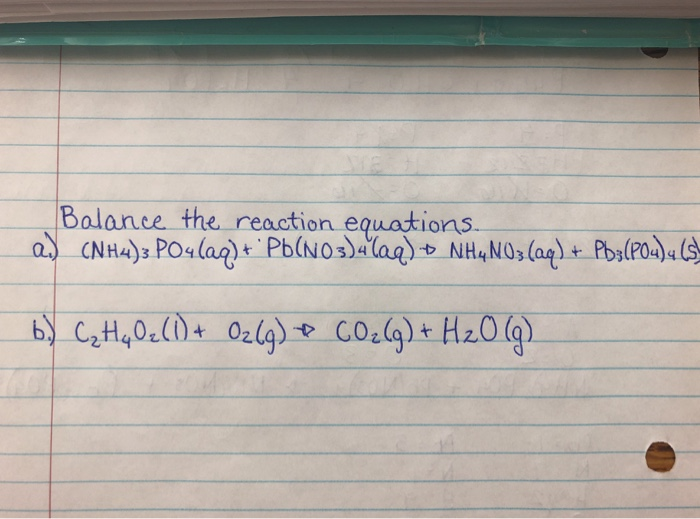 Balance the reaction equations.
a.) (NH4)3 PO4(aq) + Pb(NO3)4(aq) → NH4NO3(aq) + Pb3(PO4)4(s)
b.) C2H4O2(l) + O2(g) → CO2(g) + H2O(g)